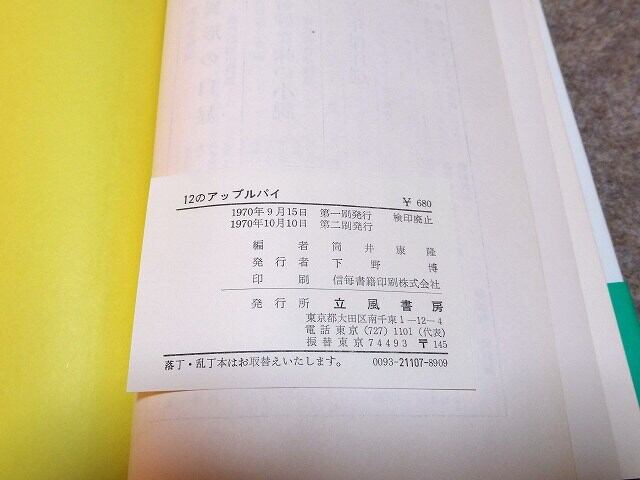 12のアップルパイ
¥ 680
1970年9月15日 第一刷発行 検印廃止
1970年10月10日 第二刷発行
編者 筒井康隆
発行者 下野博
印刷 信毎書籍印刷株式会社
発行所 立風書房
東京都大田区南千束1-12-4
電話 東京 (727) 1101 (代表)
振替東京74493 〒145
落丁・乱丁本はお取替えいたします。 0093-21107-8909